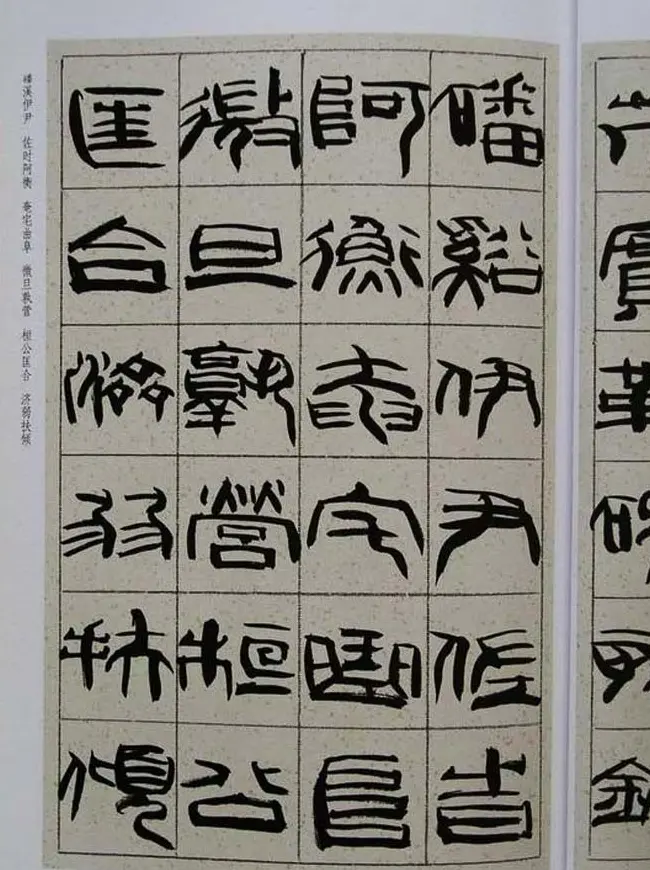 磻谿伊尹佐旹
阿衡奄宅曲阜
微旦孰營桓公
匡合濟弱扶傾
磻溪伊尹 佐时阿衡 奄宅曲阜 微旦孰营 桓公匡合 济弱扶倾